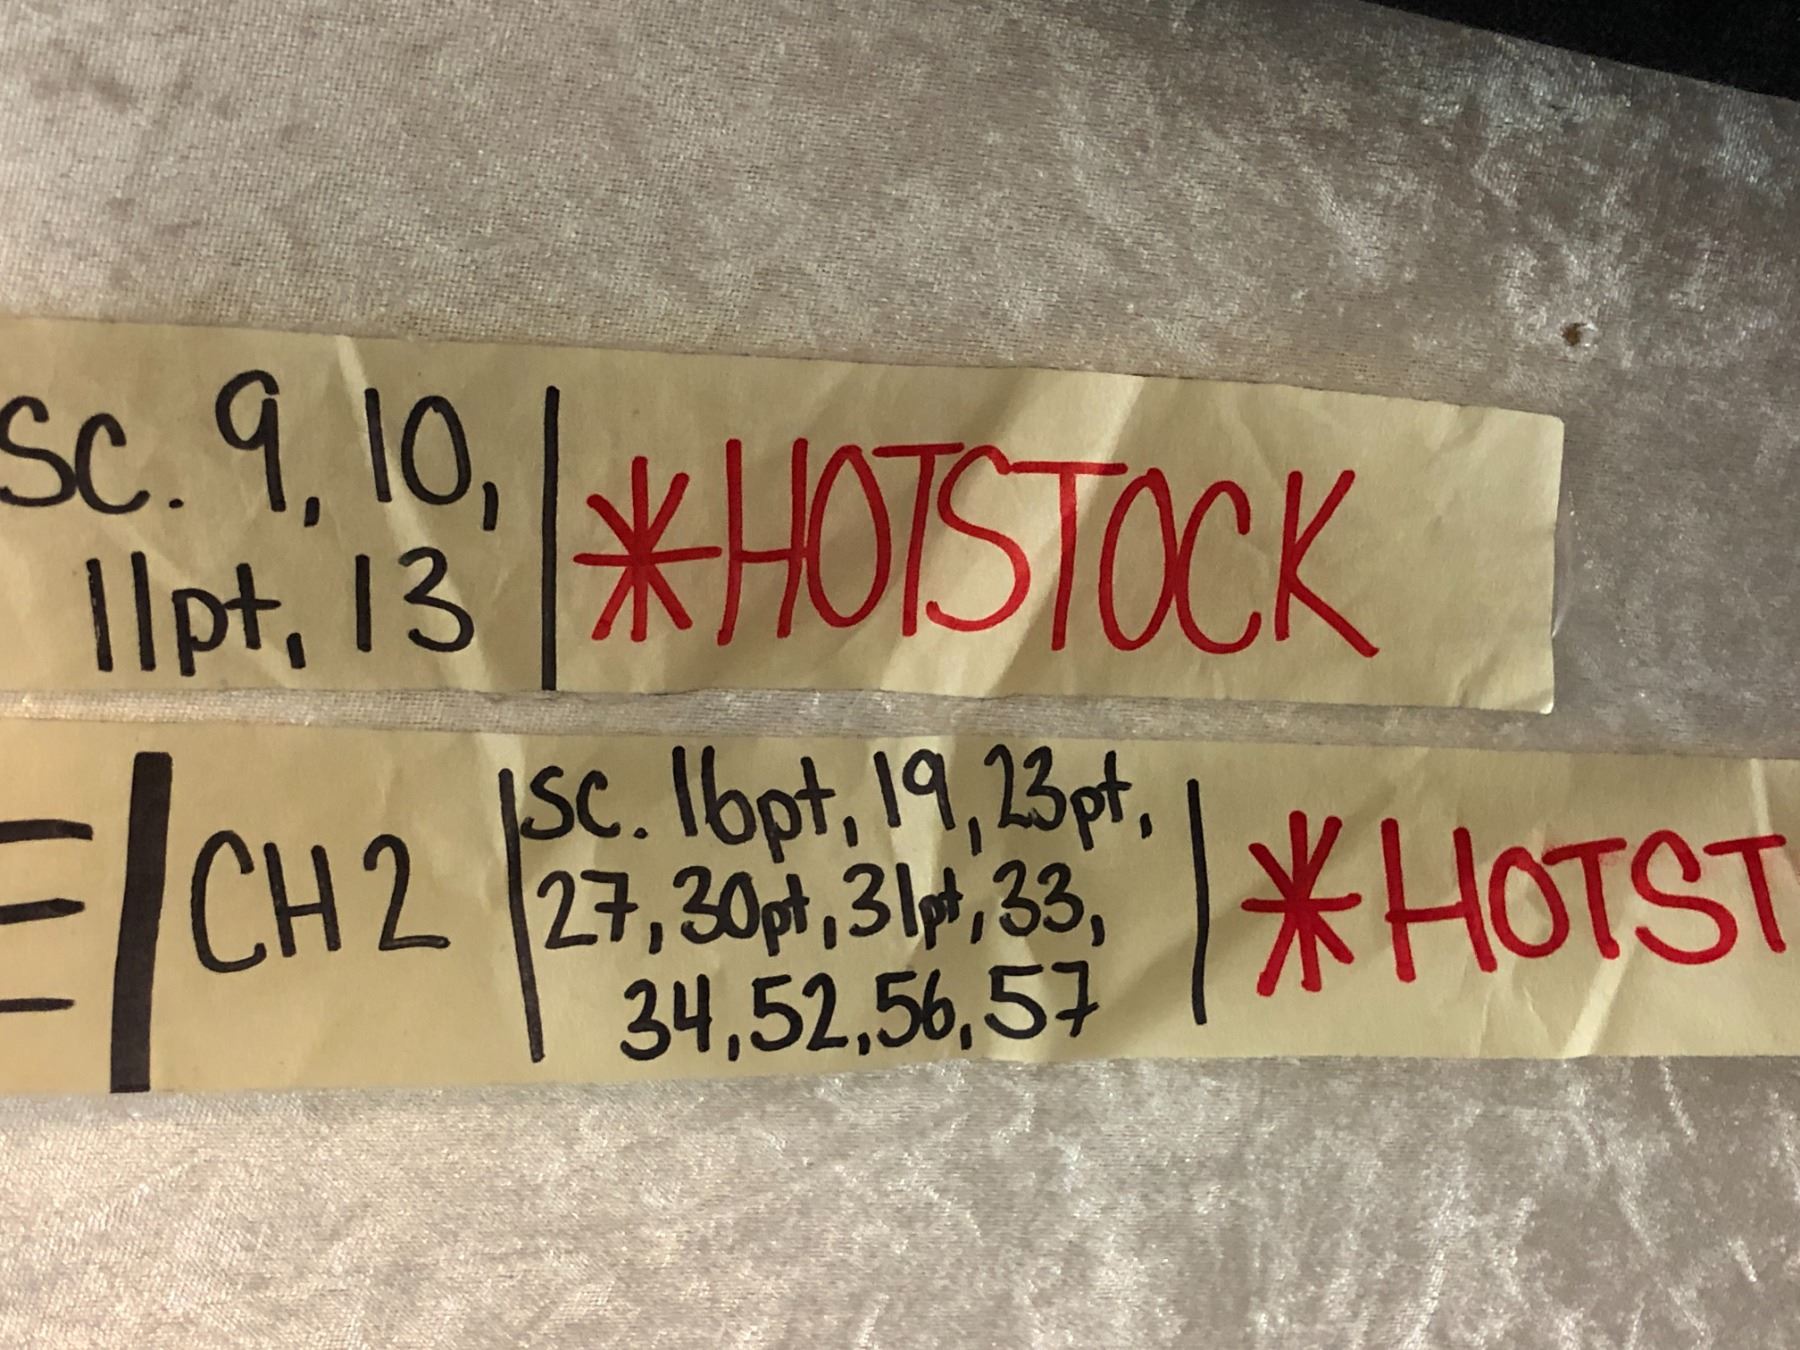 SC. 9, 10,
11pt, 13
*HOTSTOCK
CH 2
SC. 16pt, 19, 23pt,
27, 30pt, 31pt, 33,
34, 52, 56, 57
*HOTST